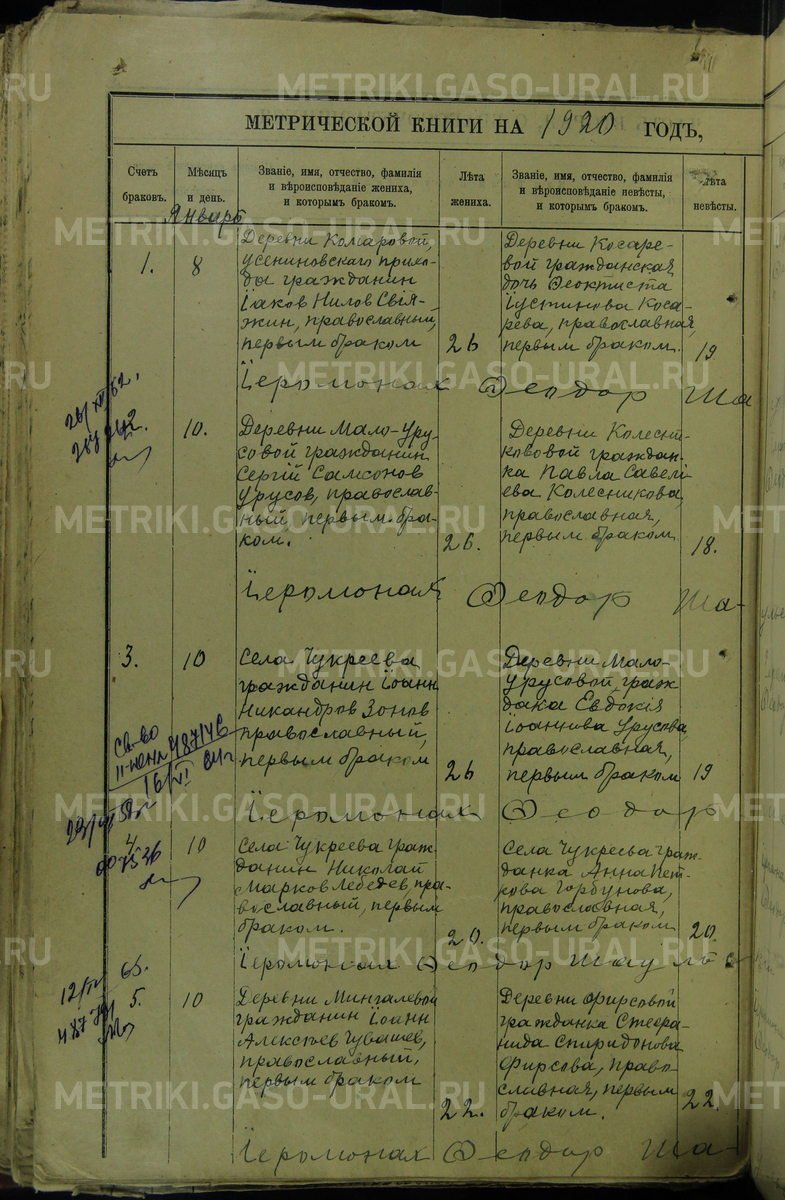 МЕТРИЧЕСКОЙ КНИГИ НА 1920 ГОДЪ,
Счетъ
браковъ.
Мѣсяцъ
и день.
Званіе, имя, отчество, фамилія
и вѣроисповѣданіе жениха,
и которымъ бракомъ.
Лѣта
жениха.
Званіе, имя, отчество, фамилія
и вѣроисповѣданіе невѣсты,
и которымъ бракомъ.
Лѣта
невѣсты.
Январь
1.
8
Деревни Комаровой,
Усениновскаго прихо-
да гражданин
Іаков Нилов Свія-
жин, православным,
первым браком
26
Деревни Косаре-
вой гражданская
дочь Феоктиста
Іустинова Коса-
рева, православная,
первым браком.
19
Іеромонах Феодор Ша-
10.
Деревни Мало-Уру-
совой гражданин
Сергій Самсонов
Урусов, православ-
ный, первым бра-
ком.
26.
Деревни Колесни-
ковой граждан-
ка Павла Савелі-
ева Колесникова,
православная,
первым браком
18.
Іеромонах Феодор Ша-
3.
10
Села Чукреева
гражданин Іоанн
Никандров Зонов
православный,
первым браком
26
Деревни Мало-
Урусовой граж
дака Евдокія
Іоаннова Урусова,
православная,
первым браком
19
Іеромонах Феодор
4.
10
Села Чукреева граж-
данин Николай
Марков Лебедев, пра-
вославный, первым
браком.
20.
Села Чукреева граж-
данка Анна Пет-
рова Горбунова,
православная,
первым браком
20.
Іеромонах Феодор
5.
10
Деревни Мингалевой
гражданин Іоанн
Алексѣев Чувашев,
православный,
первым браком
22.
Деревни Фирсовой
гражданка Стефа-
нида Спиридонова
Фирсова, право-
славная, первым
браком.
22.
Іеромонах Феодор Ша-
METRIKI.GASO-URAL.RU